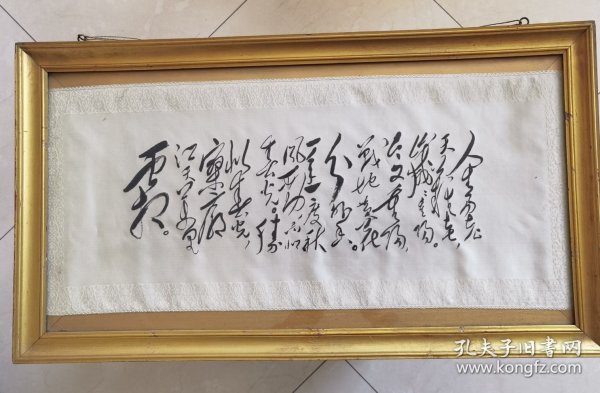 人生易老
天難老，
歲歲重陽。
今又重陽，
戰地黄花
分外香。
一年一度秋
風勁，不似
春光。勝
似春光，
寥廓
江天萬里
霜。
孔夫子旧书网
www.kongfz.com